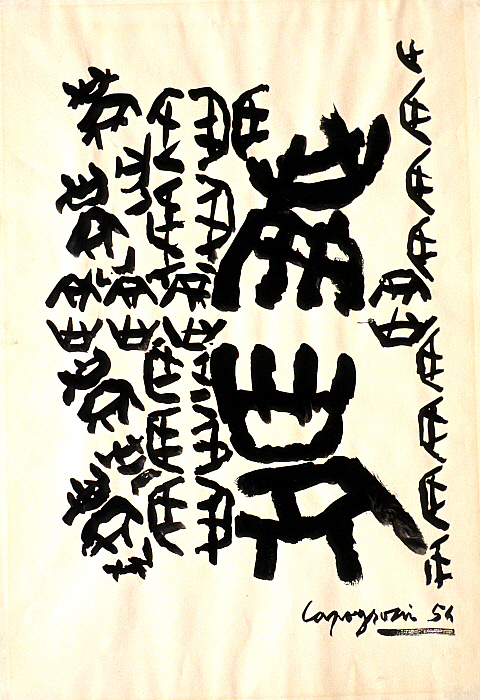 Capogrossi 54